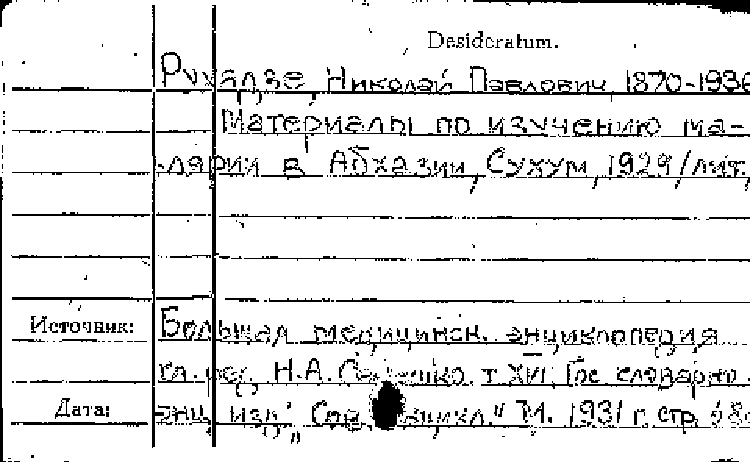 Desideratum.
Рухадзе, Николай Павлович, 1870-1936
Материалы по изучению ма-
лярии в Абхазии, Сухум, 1929/лит,
Источник: Большая медицинск. энциклопедия
гл. ред. Н.А. т. XVI, Гос словарно-
Дата: энц. изд. „Сов. энцикл." М. 1931 г. стр.